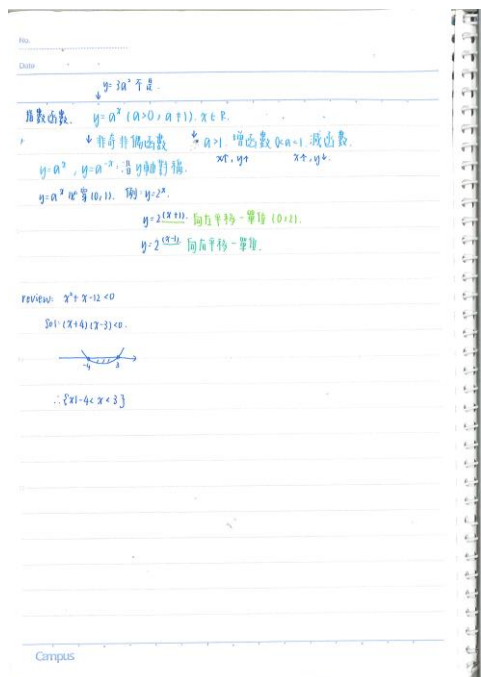 No.
Date
y=3a² 不是.
指數函數. y=aˣ (a>0, a≠1). x∈R.
↓ 非奇非偶函數 ↓ a>1. 增函數 0<a<1. 減函數.
x↑, y↑ x↑, y↓.
y=aˣ, y=a⁻ˣ. 沿 y軸對稱.
y=aˣ 必穿(0,1). 例: y=2ˣ.
y=2⁽ˣ⁺¹⁾. 向左平移一單位 (0,2).
y=2⁽ˣ⁻¹⁾ 向右平移一單位.
review: x²+x-12<0
Sol: (x+4)(x-3)<0.
-4 3
∴{x|-4<x<3}
Campus